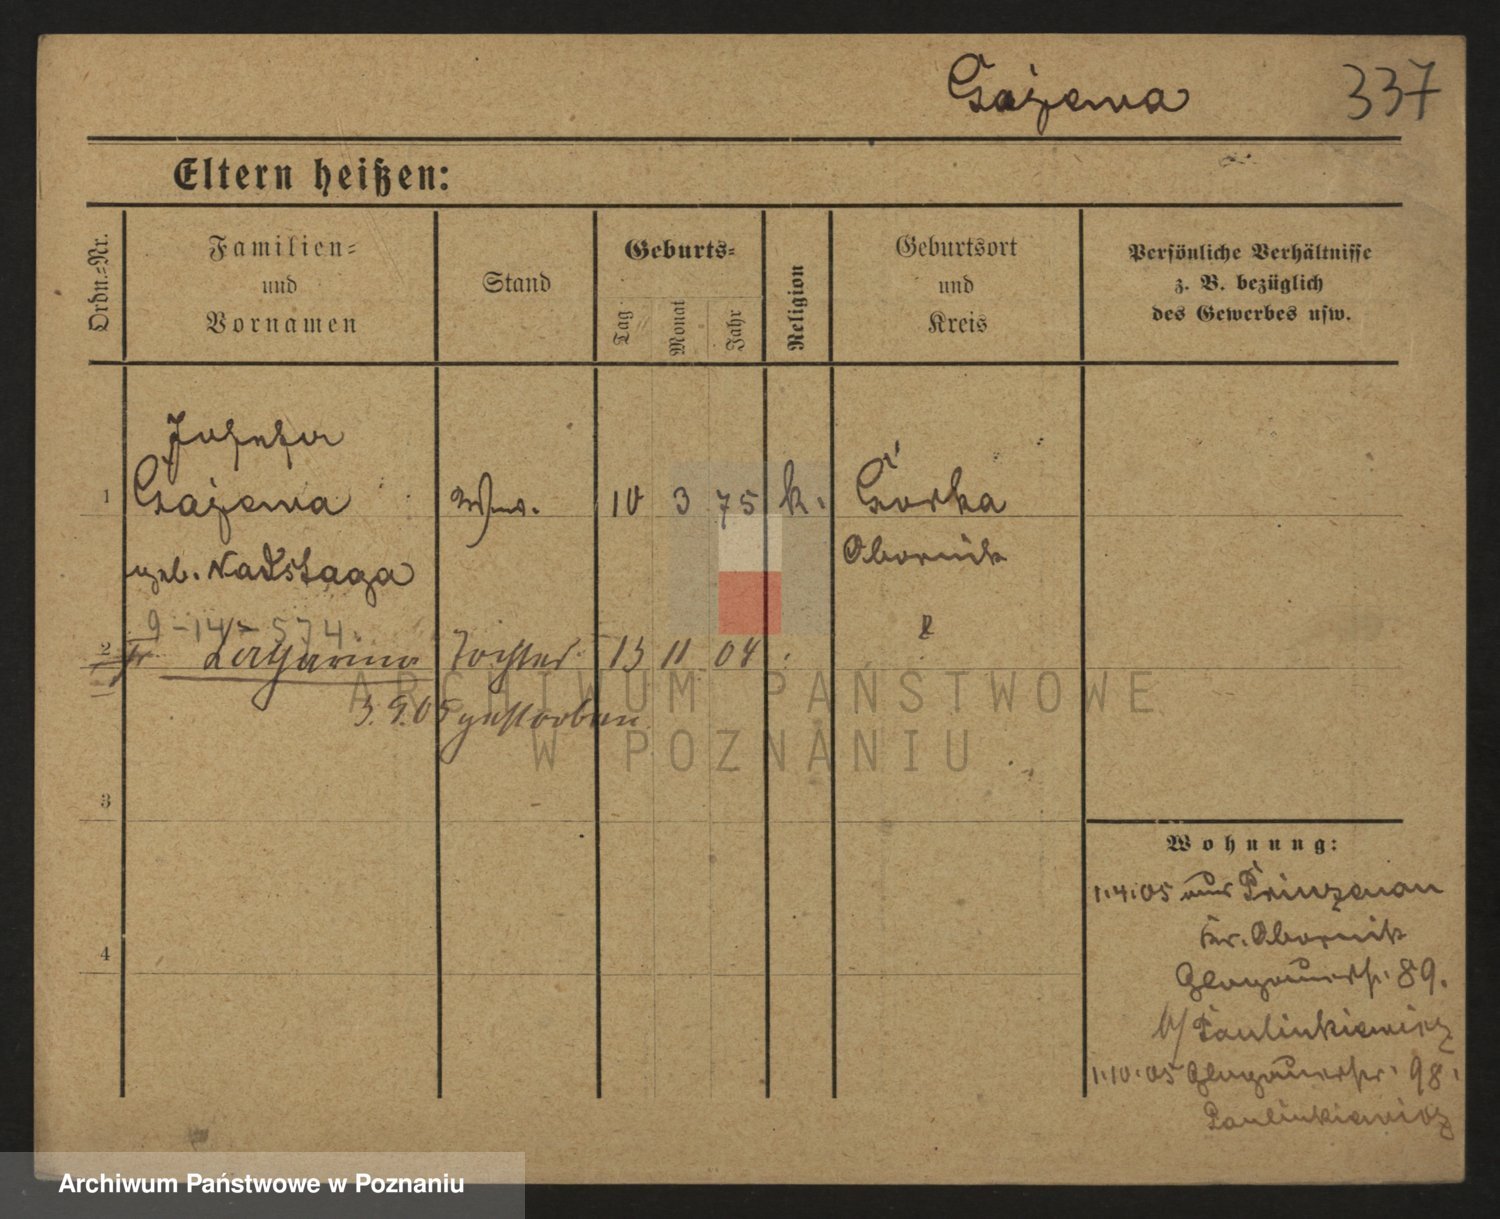 Gażewa 337
Eltern heißen:
Ordn.-Nr.
Familien-
und
Vornamen
Stand
Geburts-
Tag
Monat
Jahr
Religion
Geburtsort
und
Kreis
Persönliche Verhältnisse
z. B. bezüglich
des Gewerbes usw.
Josefa
1 Gażewa 10 3 75 k. Górka
geb. Nadstaga Obornik
9-14-574.
2 Katharina Tochter 13 11 04
3.9.05 gestorben
3
4
Wohnung:
1.4.05 aus Prinzenau
Kr. Obornik
Glogauerstr. 89.
b/ Paulinkiewicz
1.10.05 Glogauerstr. 98.
Paulinkiewicz
ARCHIWUM PAŃSTWOWE
W POZNANIU
Archiwum Państwowe w Poznaniu